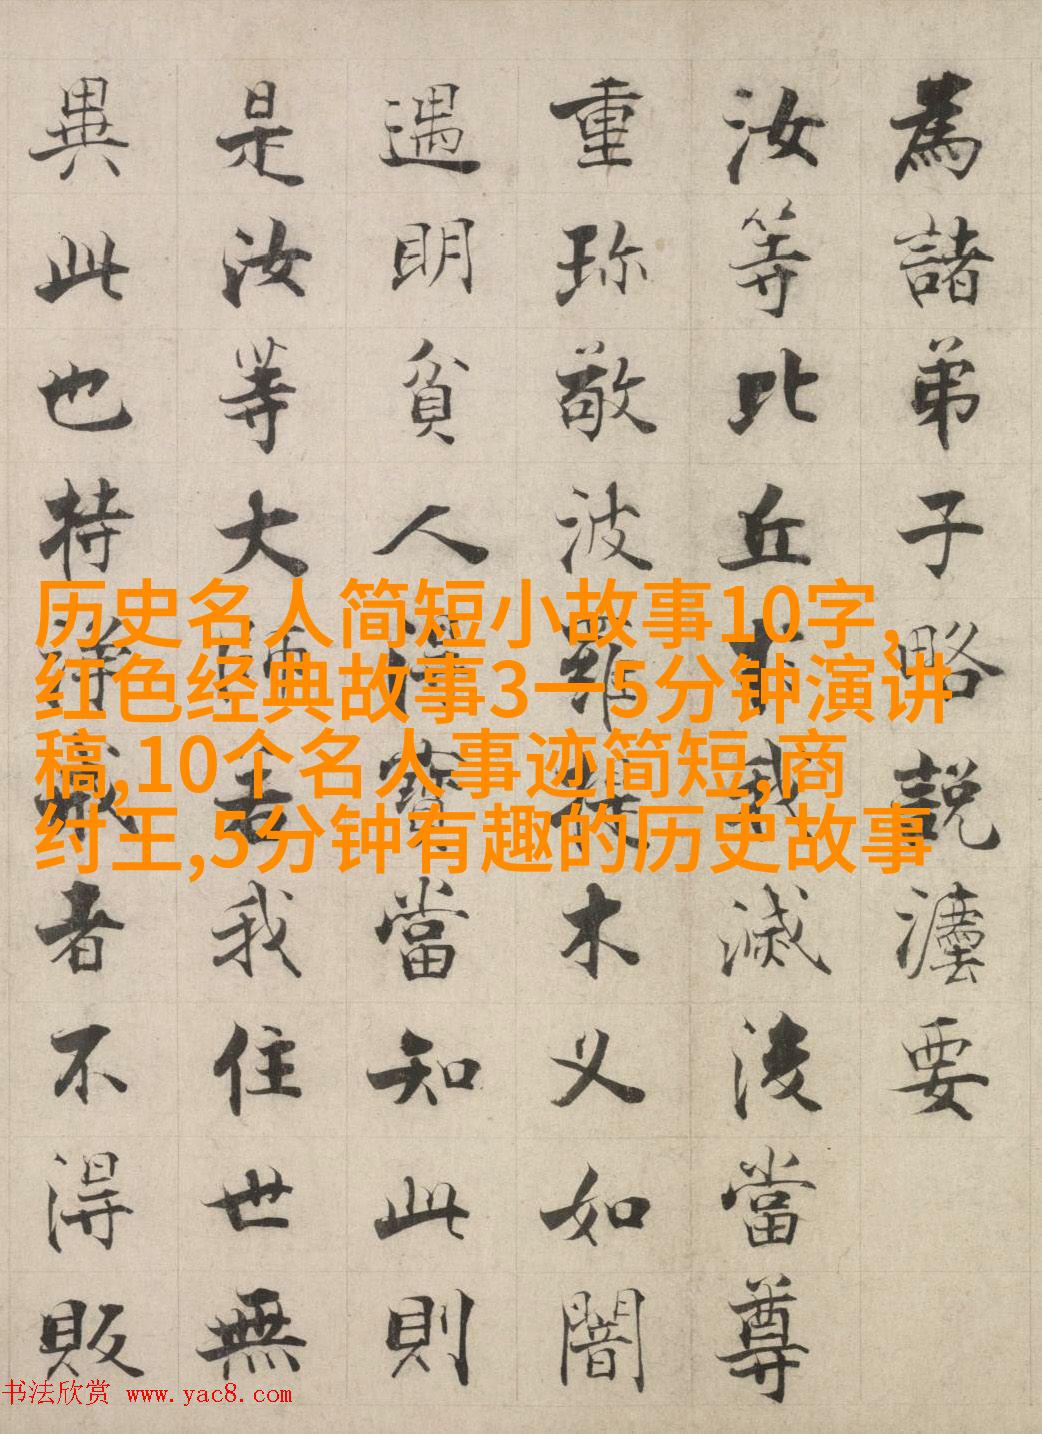 為諸弟子略説灋要
汝等比丘於我滅後當尊
重珎敬波羅提木叉如闇
遇明貧人得寶當知此則
是汝等大師若我住世無
異此也持淨戒者不得販
历史名人简短小故事10字,
红色经典故事3一5分钟演讲
稿,10个名人事迹简短,商
纣王,5分钟有趣的历史故事
书法欣赏 www.yac8.com